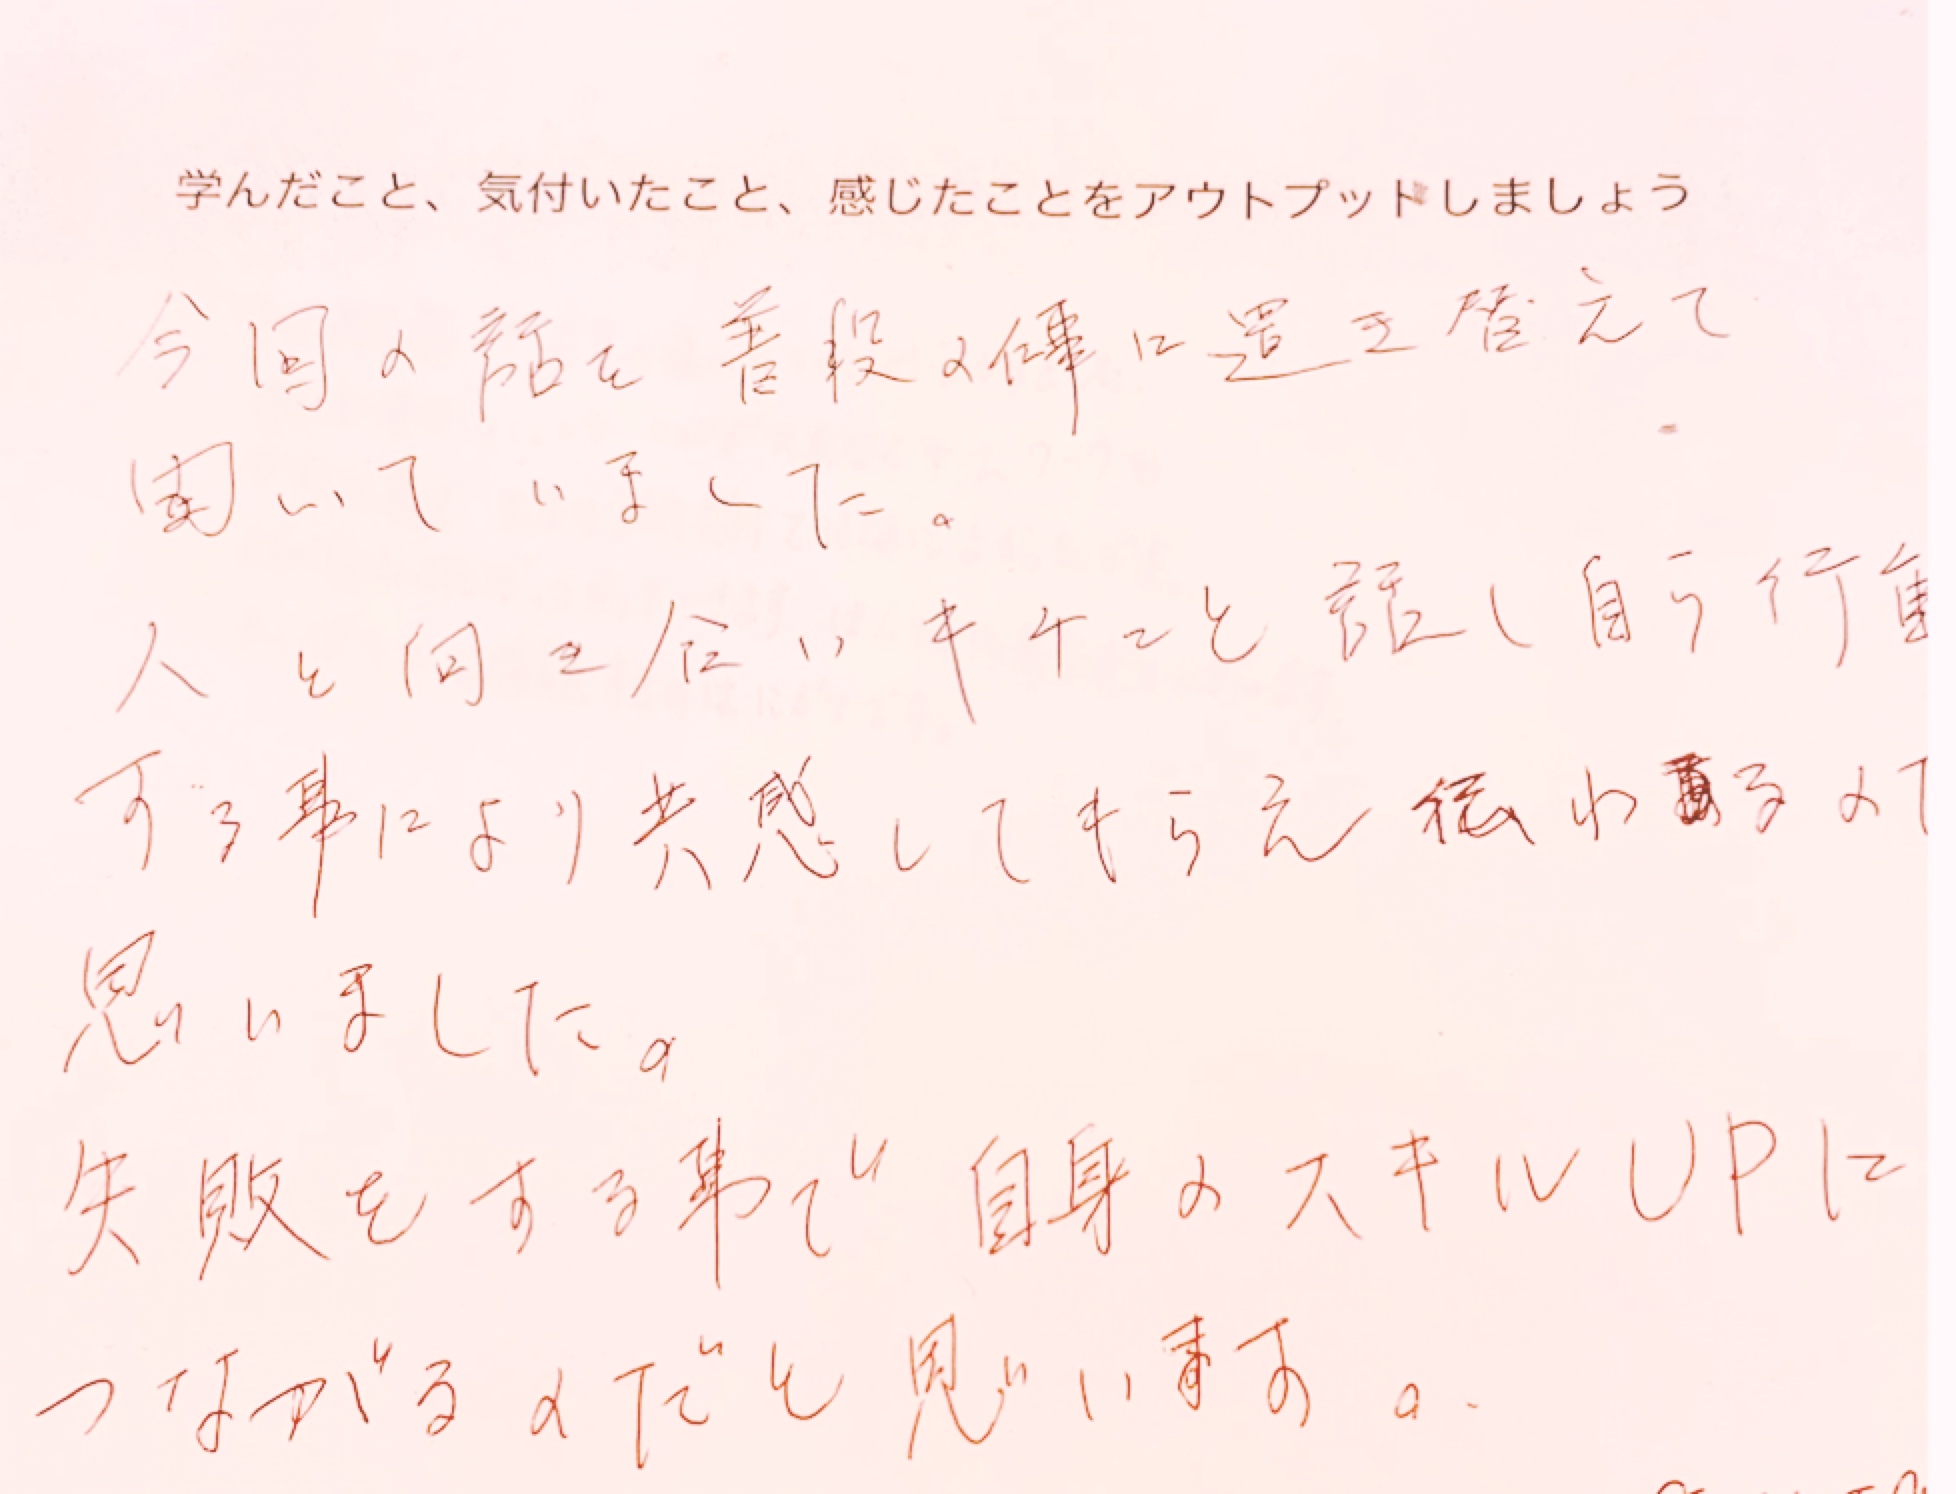 学んだこと、気付いたこと、感じたことをアウトプットしましょう
今回の話を普段の仕事に置き替えて
聞いていました。
人と向き合いキチンと話し自ら行動
する事により共感してもらえ伝わるので
思いました。
失敗をする事で自身のスキルUPに
つながるのだと思います。